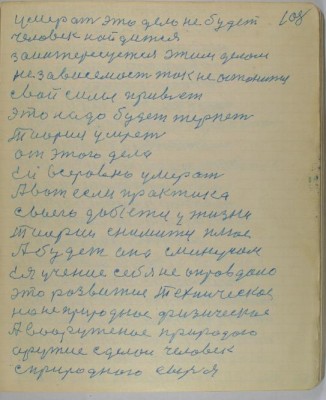 умерат это дело не будет 108
человек найдится
заинтересуется этим делом
независемост так не астанится
свой силы привает
это надо будет терпет
Теории умрет
от этого дела
Ей всеровень умерат
А вот если практика
своего добьется у жизни
Теории снимит плюс
А будет она с минусом
Ея учение себя не оправдано
это развитие техническое
на не природное физическое
А вооружение природого
оружие сделон человек
с природного сырья